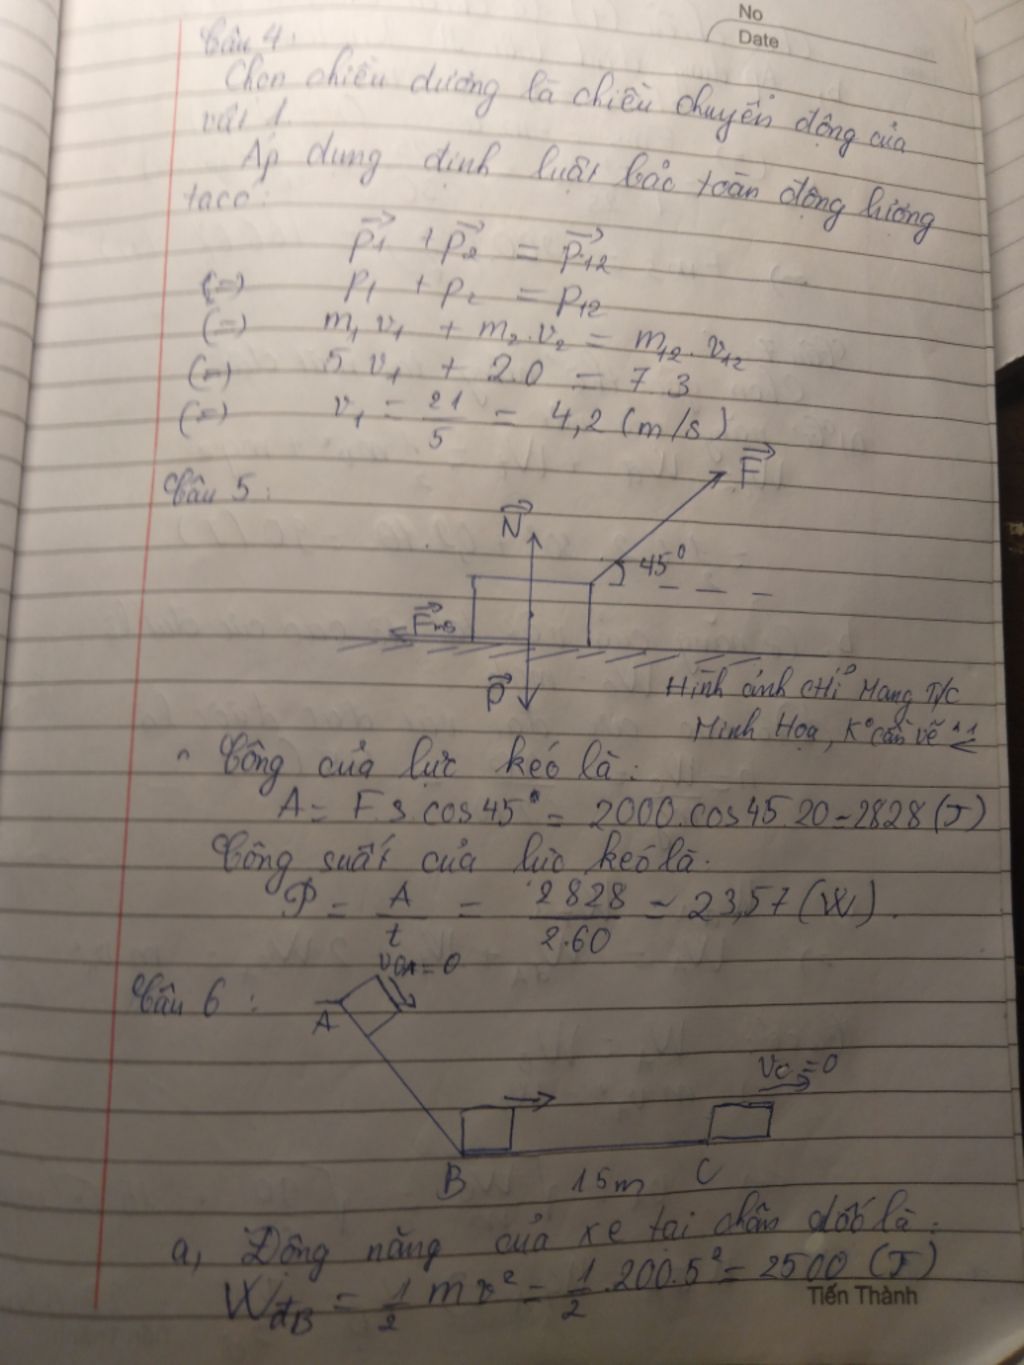 No
Date
Câu 4:
Chọn chiều dương là chiều chuyển động của
vật 1.
Áp dụng định luật bảo toàn động lượng
ta có:
p₁ + p₂ = p₁₂
(=) p₁ + p₂ = p₁₂
(=) m₁.v₁ + m₂.v₂ = m₁₂.v₁₂
(=) 5.v₁ + 2.0 = 7.3
(=) v₁ = 21/5 = 4,2 (m/s)
Câu 5:
F
N
45°
Fms
P
Hình ảnh chỉ Mang T/C
Minh Họa, K° cần vẽ ^^
Công của lực kéo là:
A = F.s.cos45° = 2000.cos45.20 = 2828 (J)
Công suất của lực kéo là:
P = A/t = 2828/2.60 = 23,57 (W).
Câu 6:
v₀A = 0
A
vC = 0
B 15m C
a, Động năng của xe tại chân dốc là:
WđB = 1/2 mv² = 1/2.200.5² = 2500 (J)
Tiến Thành